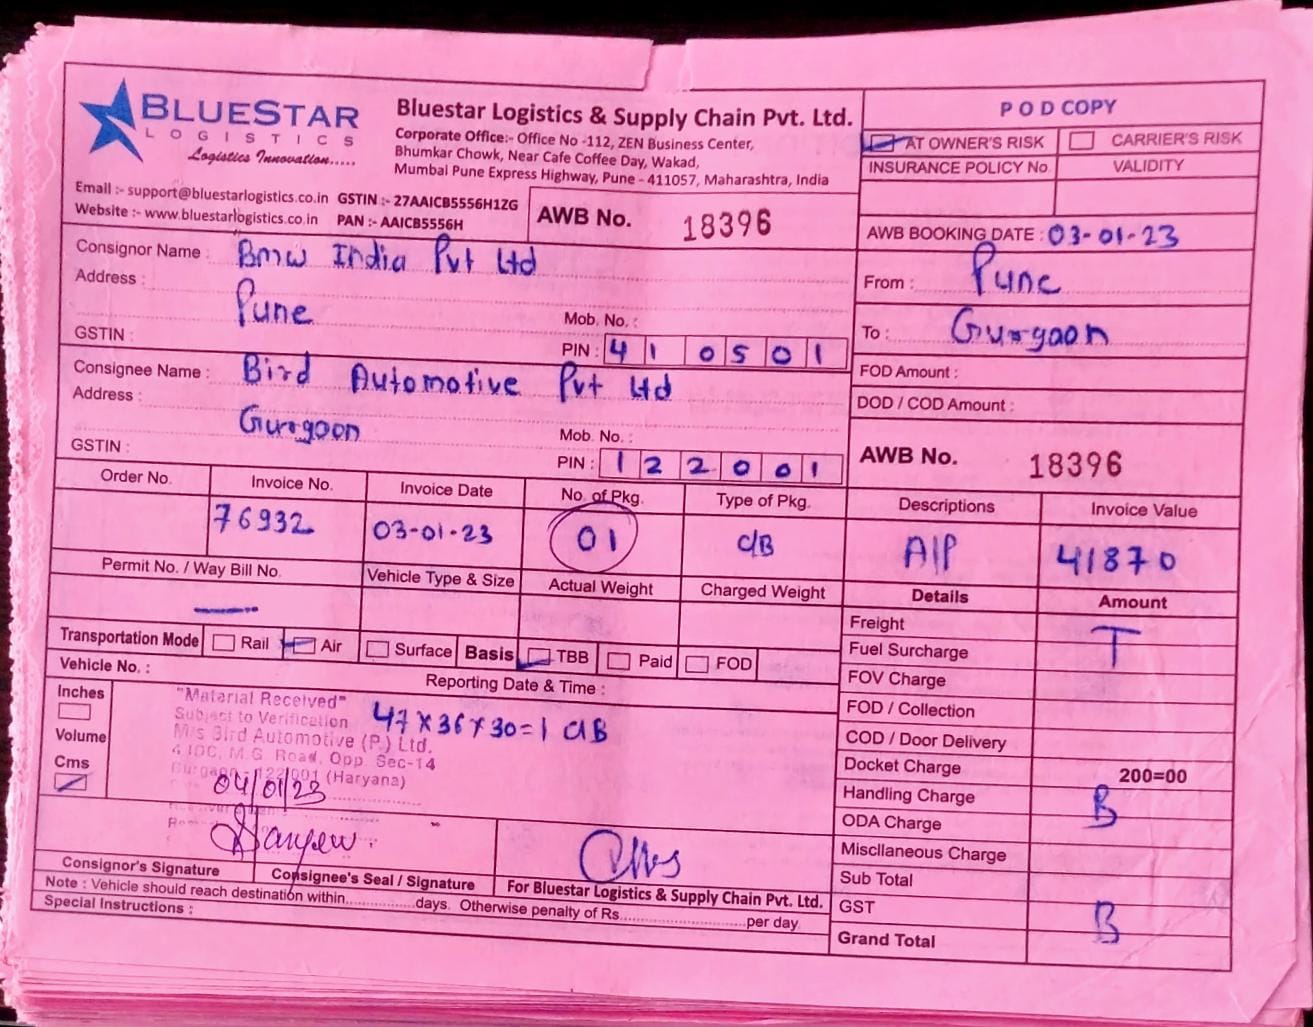 BLUESTAR
LOGISTICS
Logistics Innovation.....
Bluestar Logistics & Supply Chain Pvt. Ltd.
Corporate Office:- Office No -112, ZEN Business Center,
Bhumkar Chowk, Near Cafe Coffee Day, Wakad,
Mumbai Pune Express Highway, Pune - 411057, Maharashtra, India
Email :- support@bluestarlogistics.co.in GSTIN :- 27AAICB5556H1ZG
Website :- www.bluestarlogistics.co.in PAN :- AAICB5556H
AWB No. 18396
POD COPY
AT OWNER'S RISK CARRIER'S RISK
INSURANCE POLICY No. VALIDITY
AWB BOOKING DATE : 03-01-23
From : Pune
To : Gurgaon
FOD Amount :
DOD / COD Amount :
AWB No. 18396
Consignor Name : Bmw India Pvt Ltd
Address :
Pune
Mob. No. :
GSTIN : PIN : 410501
Consignee Name : Bird Automotive Pvt Ltd
Address :
Gurgoon
Mob. No. :
GSTIN : PIN : 122001
Order No. Invoice No. Invoice Date No. of Pkg. Type of Pkg. Descriptions Invoice Value
76932 03-01-23 01 C/B A/P 41870
Permit No. / Way Bill No. Vehicle Type & Size Actual Weight Charged Weight Details Amount
Transportation Mode Rail Air Surface Basis TBB Paid FOD
Vehicle No. : Reporting Date & Time :
Inches
Volume
Cms
"Material Received"
Subject to Verification
M/s Bird Automotive (P.) Ltd.
M.G. Road, Opp. Sec-14
Gurgaon - 122001 (Haryana)
04/01/23
47x36x30=1 C/B
Consignor's Signature Consignee's Seal / Signature For Bluestar Logistics & Supply Chain Pvt. Ltd.
Note : Vehicle should reach destination within...............days. Otherwise penalty of Rs...........................per day.
Special Instructions :
Freight T
Fuel Surcharge
FOV Charge
FOD / Collection
COD / Door Delivery
Docket Charge 200=00
Handling Charge B
ODA Charge
Miscllaneous Charge
Sub Total
GST B
Grand Total